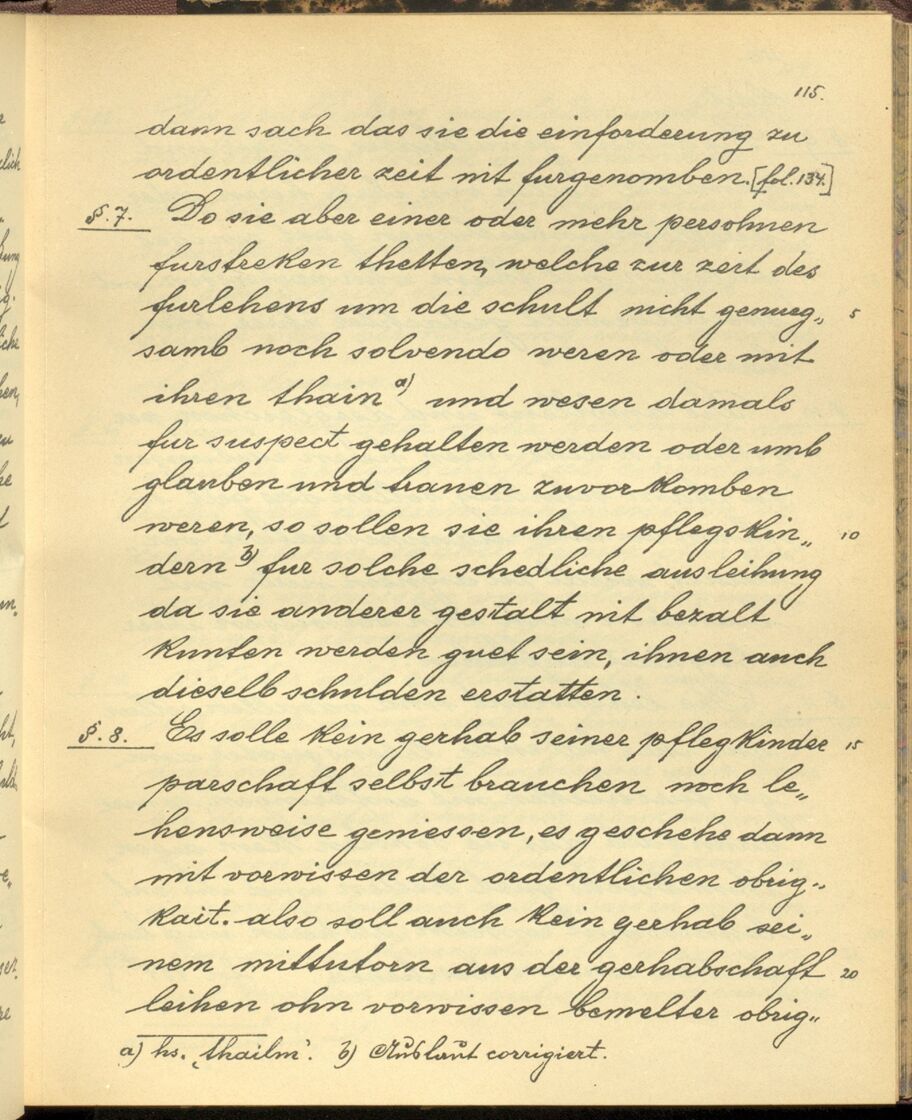 115.
dann sach das sie die einforderung zu
ordentlicher zeit nit furgenomben. [fol. 134.]
§. 7. Do sie aber einer oder mehr persohnen
furstreken thetten, welche zur zeit des
furlehens um die schult nicht genueg„ 5
samb noch solvendo weren oder mit
ihren thain a) und wesen damals
fur suspect gehalten werden oder umb
glauben und trauen zuvor komben
weren, so sollen sie ihren pflegskin„ 10
dern b) fur solche schedliche ausleihung
da sie anderer gestalt nit bezalt
kunten werden guet sein, ihnen auch
dieselb schulden erstatten.
§. 8. Es solle kein gerhab seiner pflegkinder 15
parschaft selbst brauchen noch le„
hensweise geniessen, es geschehe dann
mit vorwissen der ordentlichen obrig„
kait. also soll auch kein gerhab sei„
nem mittutorn aus der gerhabschaft 20
leihen ohn vorwissen bemelter obrig„
a) hs. ‚thailm‘. b) Auslaut corrigiert.